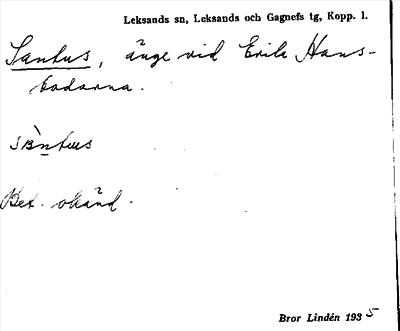 Leksands sn, Leksands och Gagnefs tg, Kopp. 1.
Santus, änge vid Erik Hans-
bodarna.
sàntus
Bet. okänd.
Bror Lindén 1935